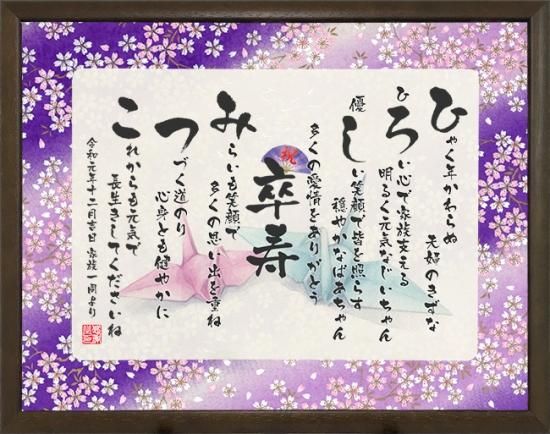 ひゃく年かわらぬ
夫婦のきずな
ひろい心で家族支える
明るく元気なじいちゃん
優しい笑顔で皆を照らす
穏やかなばあちゃん
多くの愛情をありがとう
祝
卒寿
みらいも笑顔で
多くの思い出を重ね
つづく道のり
心身とも健やかに
これからも元気で
長生きしてくださいね
令和元年十二月吉日 家族一同より